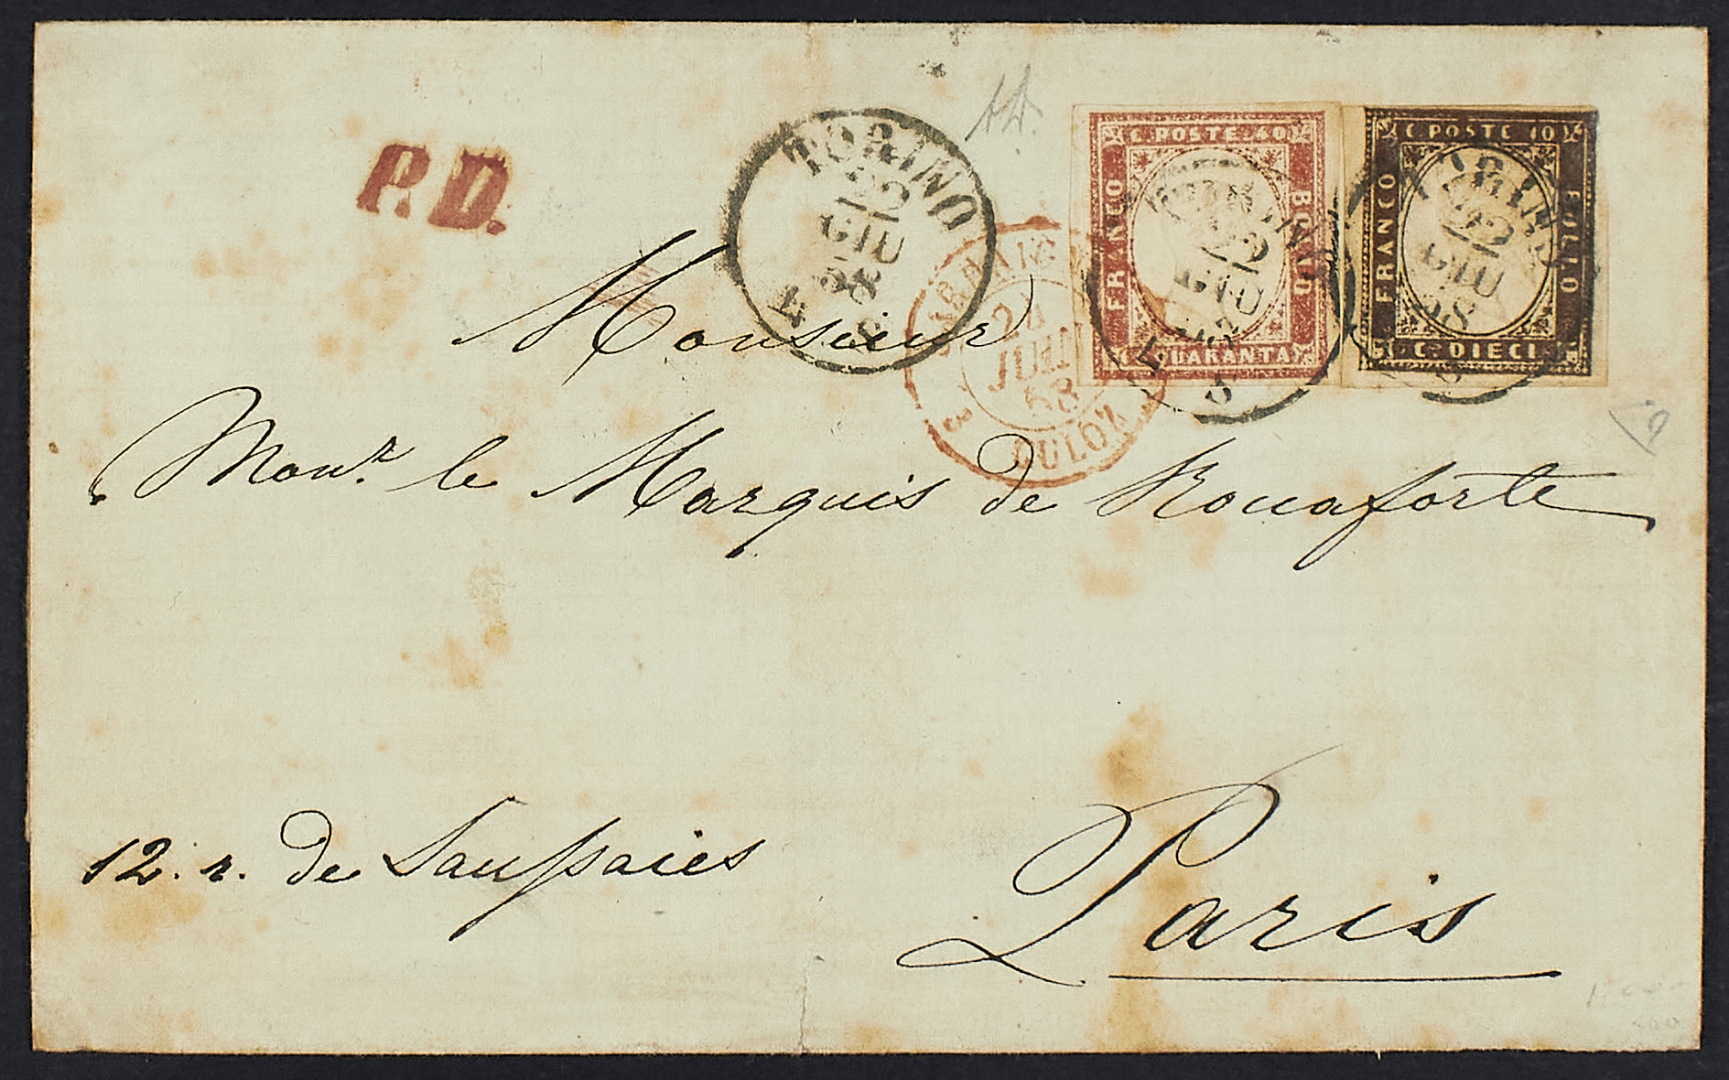 P.D.
TORINO
22
GIU
58
C. POSTE 40
FRANCO
BOLLO
C. QUARANTA
C. POSTE 10
FRANCO
BOLLO
C. DIECI
TORINO
22
GIU
58
TORINO
22
GIU
58
24
JUIN
58
CULOZ
3
Monsieur
Monr. le Marquis de Rocaforte
12. r. de Saussaies
Paris